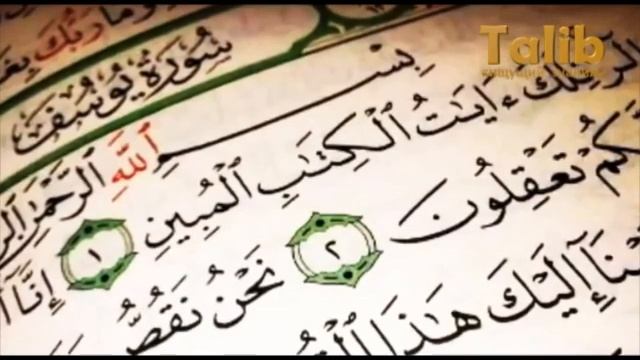 Talib
وَمَا رَبُّكَ
سُورَةُ يُوسُفَ
بِسْمِ ٱللَّهِ ٱلرَّحْمَٰنِ
الٓر تِلْكَ ءَايَٰتُ ٱلْكِتَٰبِ ٱلْمُبِينِ ١ إِنَّآ
كُمْ تَعْقِلُونَ ٢ نَحْنُ نَقُصُّ
يْنَآ إِلَيْكَ هَٰذَا